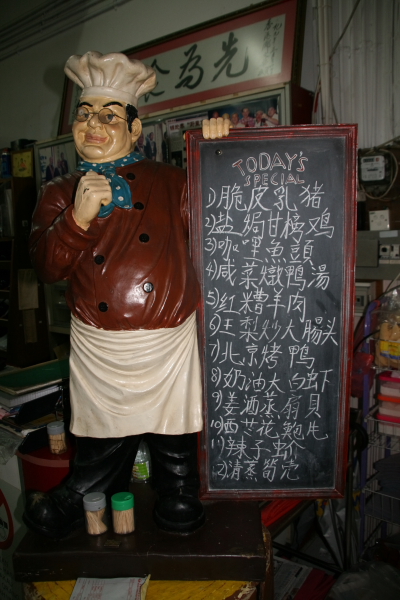 為先
TODAY'S
SPECIAL
1)脆皮乳猪
2)盐焗甘榜鸡
3)咖哩魚頭
4)咸菜燉鴨湯
5)红糟羊肉
6)王梨炒大腸头
7)北京烤鴨
8)奶油大白虾
9)姜酒蒸扇貝
10)西花鲍片
11)辣子蚧
12)清蒸筍壳